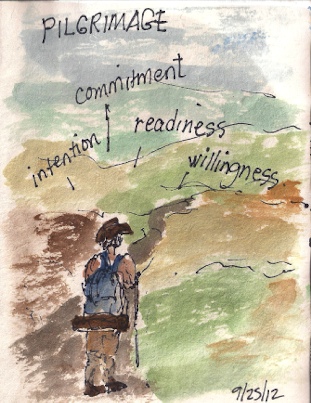 PILGRIMAGE
commitment
intention
readiness
willingness
9/25/12